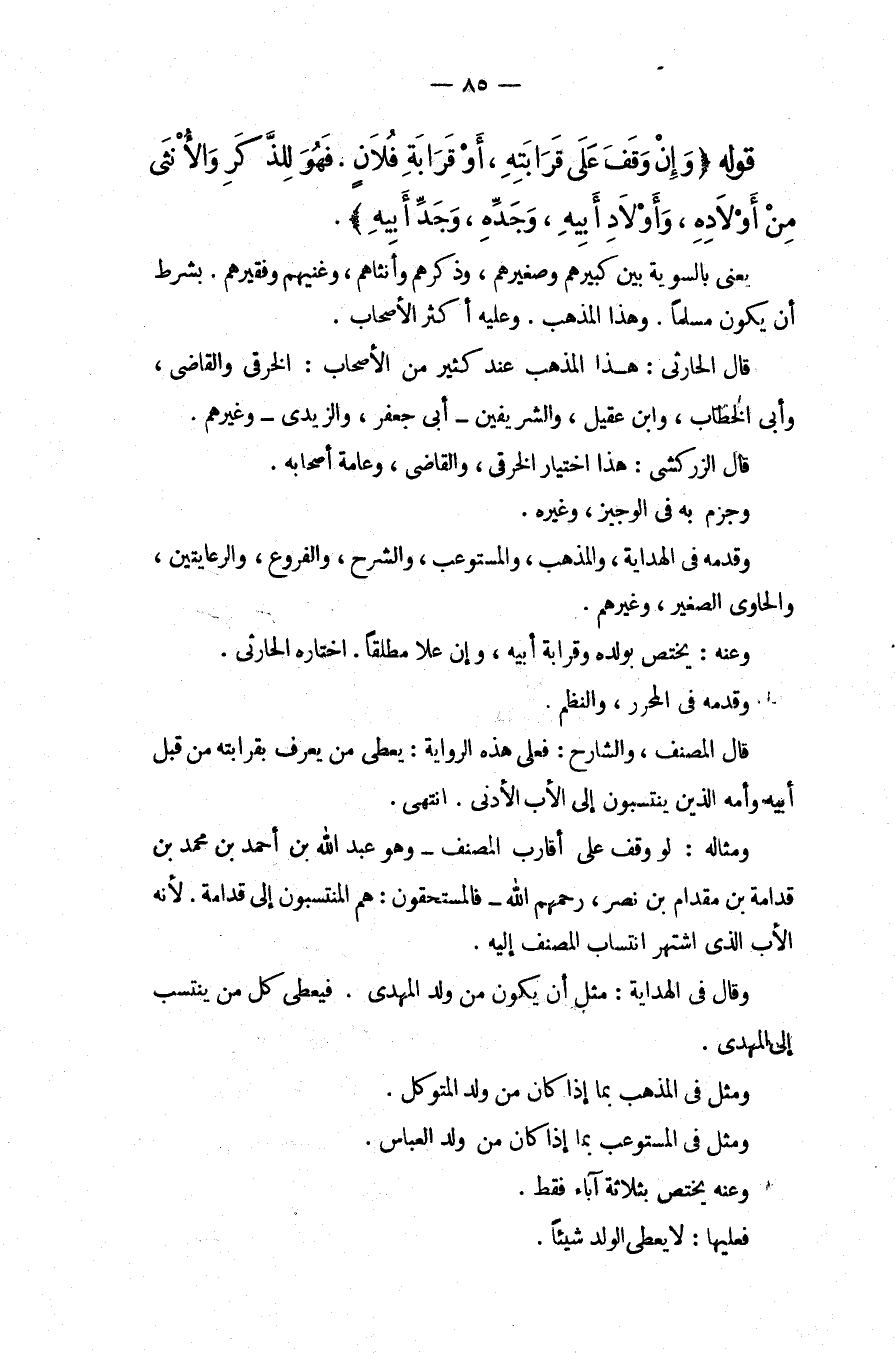 — ٨٥ —
قوله ﴿ وَإِنْ وَقَفَ عَلَى قَرَابَتِهِ ، أَوْ قَرَابَةِ فُلَانٍ . فَهُوَ لِلذَّكَرِ وَالْأُنْثَى
مِنْ أَوْلَادِهِ ، وَأَوْلَادِ أَبِيهِ ، وَجَدِّهِ ، وَجَدِّ أَبِيهِ ﴾ .
يعنى بالسوية بين كبيرهم وصغيرهم ، وذكرهم وأنثاهم ، وغنيهم وفقيرهم . بشرط
أن يكون مسلماً . وهذا المذهب . وعليه أكثر الأصحاب .
قال الحارثى : هـذا المذهب عند كثير من الأصحاب : الخرقى والقاضى ،
وأبى الخطّاب ، وابن عقيل ، والشريفين ــ أبى جعفر ، والزيدى ــ وغيرهم .
قال الزركشى : هذا اختيار الخرقى ، والقاضى ، وعامة أصحابه .
وجزم به فى الوجيز ، وغيره .
وقدمه فى الهداية ، والمذهب ، والمستوعب ، والشرح ، والفروع ، والرعايتين ،
والحاوى الصغير ، وغيرهم .
وعنه : يختص بولده وقرابة أبيه ، وإن علا مطلقاً . اختاره الحارثى .
وقدمه فى المحرر ، والنظم .
قال المصنف ، والشارح : فعلى هذه الرواية : يعطى من يعرف بقرابته من قبل
أبيه وأمه الذين ينتسبون إلى الأب الأدنى . انتهى .
ومثاله : لو وقف على أقارب المصنف ــ وهو عبد الله بن أحمد بن محمد بن
قدامة بن مقدام بن نصر ، رحمهم الله ــ فالمستحقون : هم المنتسبون إلى قدامة . لأنه
الأب الذى اشتهر انتساب المصنف إليه .
وقال فى الهداية : مثل أن يكون من ولد المهدى . فيعطى كل من ينتسب
إلى المهدى .
ومثل فى المذهب بما إذا كان من ولد المتوكل .
ومثل فى المستوعب بما إذا كان من ولد العباس .
وعنه يختص بثلاثة آباء فقط .
فعليها : لا يعطى الولد شيئاً .